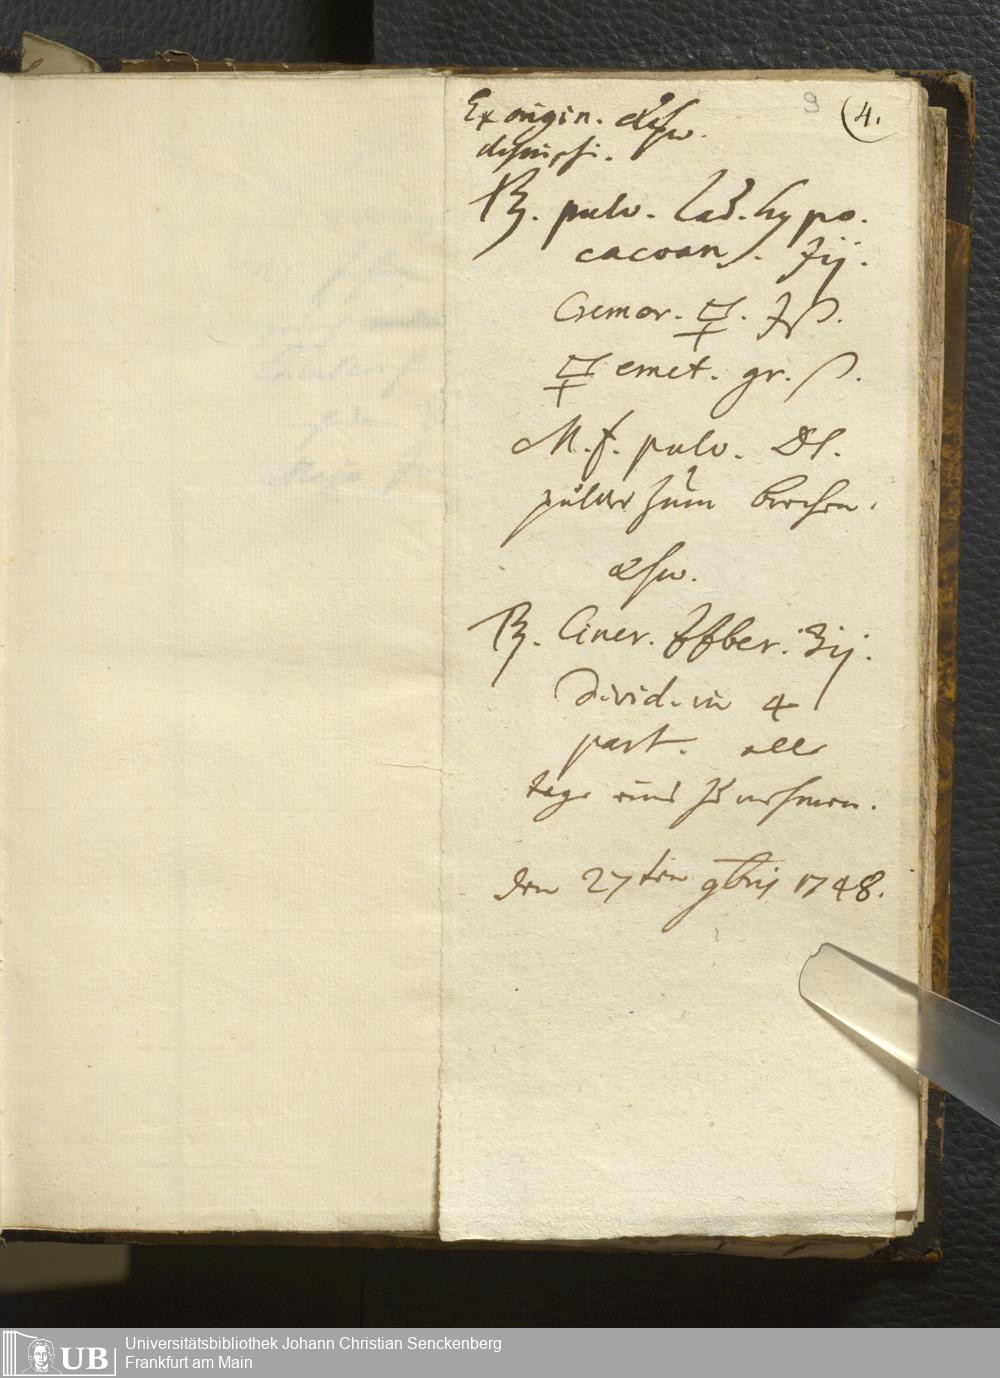 9 (4.
Ex origin.
descripsi.
℞. pulv. rad. hypo.
cacoan. ʒij.
Cremor. 🜿. ʒß.
🜿 emet. gr. ß.
M. f. pulv. DS.
pulver zum brechen.
℞. Ciner. ʒij.
Divid. in 4
part. alle
tage eins zu nehmen.
den 27ten 9bris 1748.
UB
Universitätsbibliothek Johann Christian Senckenberg
Frankfurt am Main